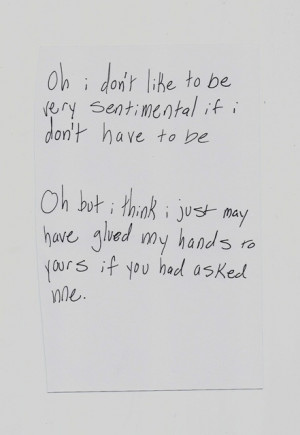 Oh i don't like to be
very sentimental if i
don't have to be
Oh but i think i just may
have glued my hands to
yours if you had asked
me.